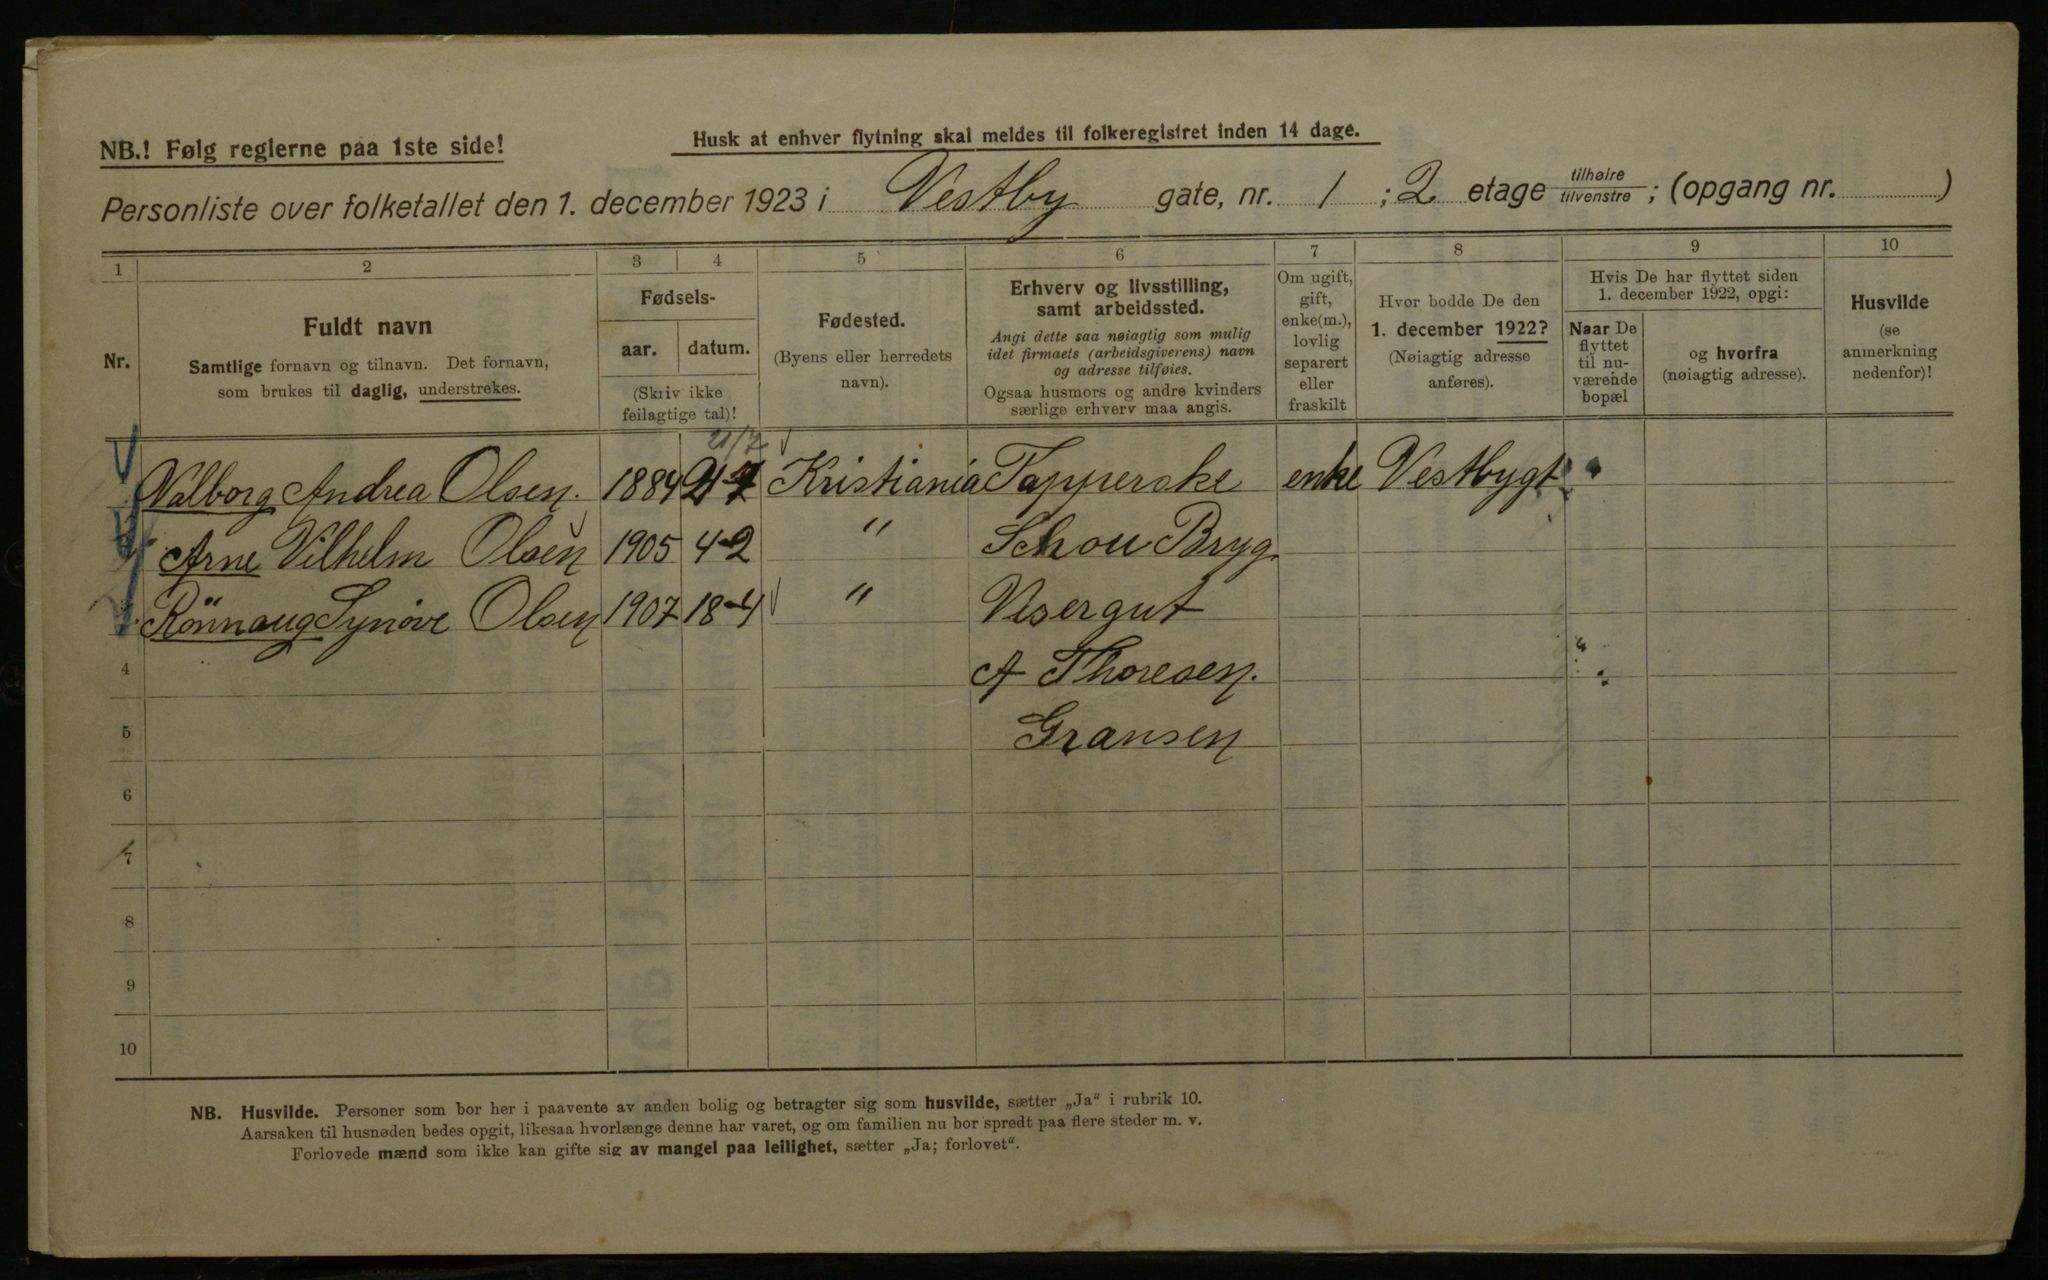 NB.! Følg reglerne paa 1ste side!
Husk at enhver flytning skal meldes til folkeregistret inden 14 dage.
Personliste over folketallet den 1. december 1923 i Vestby gate, nr. 1 ; 2 etage tilhøire/tilvenstre ; (opgang nr. )
1 2 3 4 5 6 7 8 9 10
Nr.
Fuldt navn
Samtlige fornavn og tilnavn. Det fornavn,
som brukes til daglig, understrekes.
Fødsels-
aar. datum.
(Skriv ikke
feilagtige tal)!
Fødested.
(Byens eller herredets
navn).
Erhverv og livsstilling,
samt arbeidssted.
Angi dette saa nøiagtig som mulig
idet firmaets (arbeidsgiverens) navn
og adresse tilføies.
Ogsaa husmors og andre kvinders
særlige erhverv maa angis.
Om ugift,
gift,
enke(m.),
lovlig
separert
eller
fraskilt
Hvor bodde De den
1. december 1922?
(Nøiagtig adresse
anføres).
Hvis De har flyttet siden
1. december 1922, opgi:
Naar De
flyttet
til nu-
værende
bopæl
og hvorfra
(nøiagtig adresse).
Husvilde
(se
anmerkning
nedenfor)!
21/7
Valborg Andrea Olsen. 1884 21-7 Kristiania Tapperske enke Vestbygt
Arne Vilhelm Olsen 1905 4-2 " Schou Bryg.
Rönnaug Synöve Olsen 1907 18-4 " Visergut
4 A Thoresen.
5 Gransen
6
7
8
9
10
NB. Husvilde. Personer som bor her i paavente av anden bolig og betragter sig som husvilde, sætter „Ja“ i rubrik 10.
Aarsaken til husnøden bedes opgit, likesaa hvorlænge denne har varet, og om familien nu bor spredt paa flere steder m. v.
Forlovede mænd som ikke kan gifte sig av mangel paa leilighet, sætter „Ja; forlovet“.